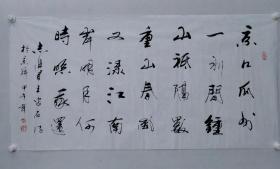 京口瓜洲
一水間鍾
山祗隔數
重山春風
又綠江南
岸明月何
時照我還
王安石詩
甲午